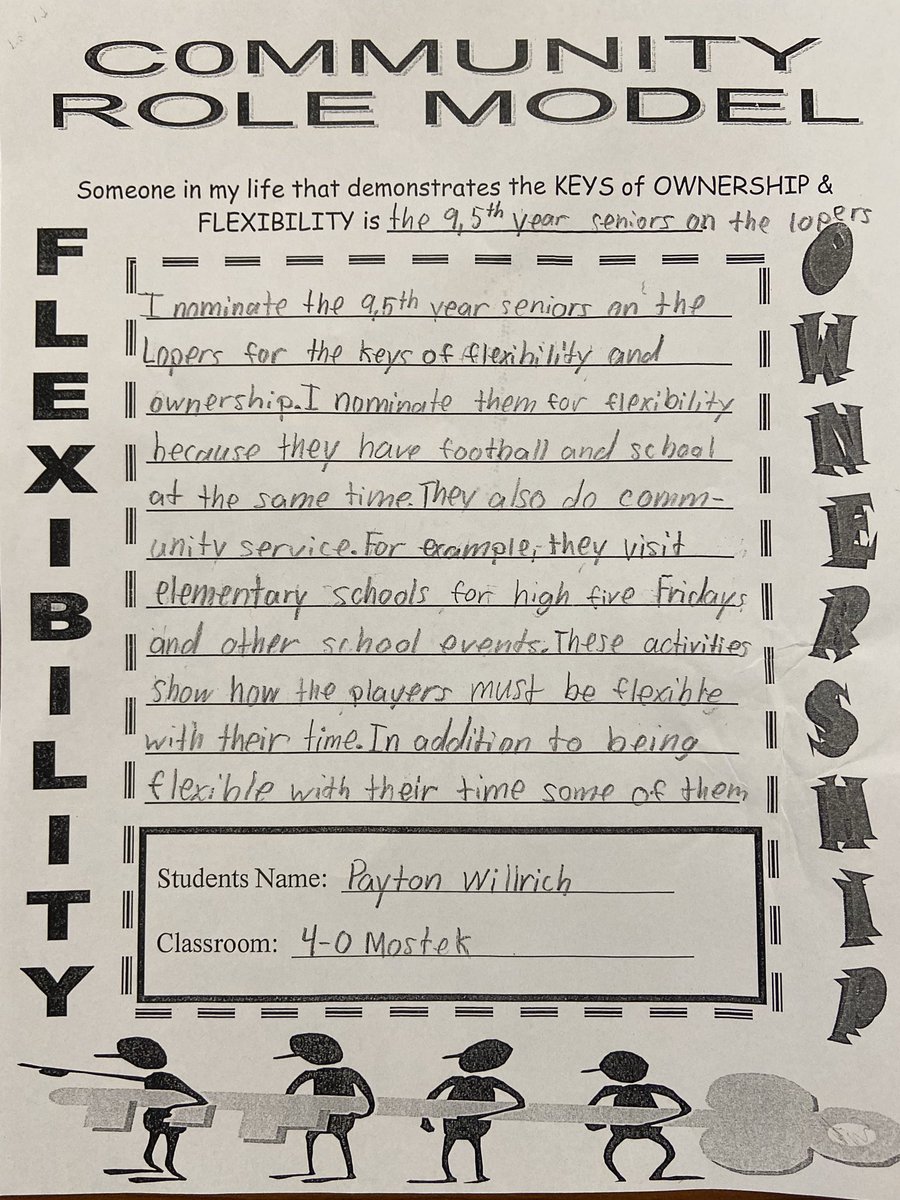 COMMUNITY
ROLE MODEL
Someone in my life that demonstrates the KEYS of OWNERSHIP &
FLEXIBILITY is the 9,5th year seniors on the lopers
FLEXIBILITY
I nominate the 9,5th year seniors on the
Lopers for the keys of flexibility and
ownership. I nominate them for flexibility
because they have football and school
at the same time. They also do comm-
unity service. For example, they visit
elementary schools for high five Fridays
and other school events. These activities
show how the players must be flexible
with their time. In addition to being
flexible with their time some of them
OWNERSHIP
Students Name: Payton Willrich
Classroom: 4-O Mostek